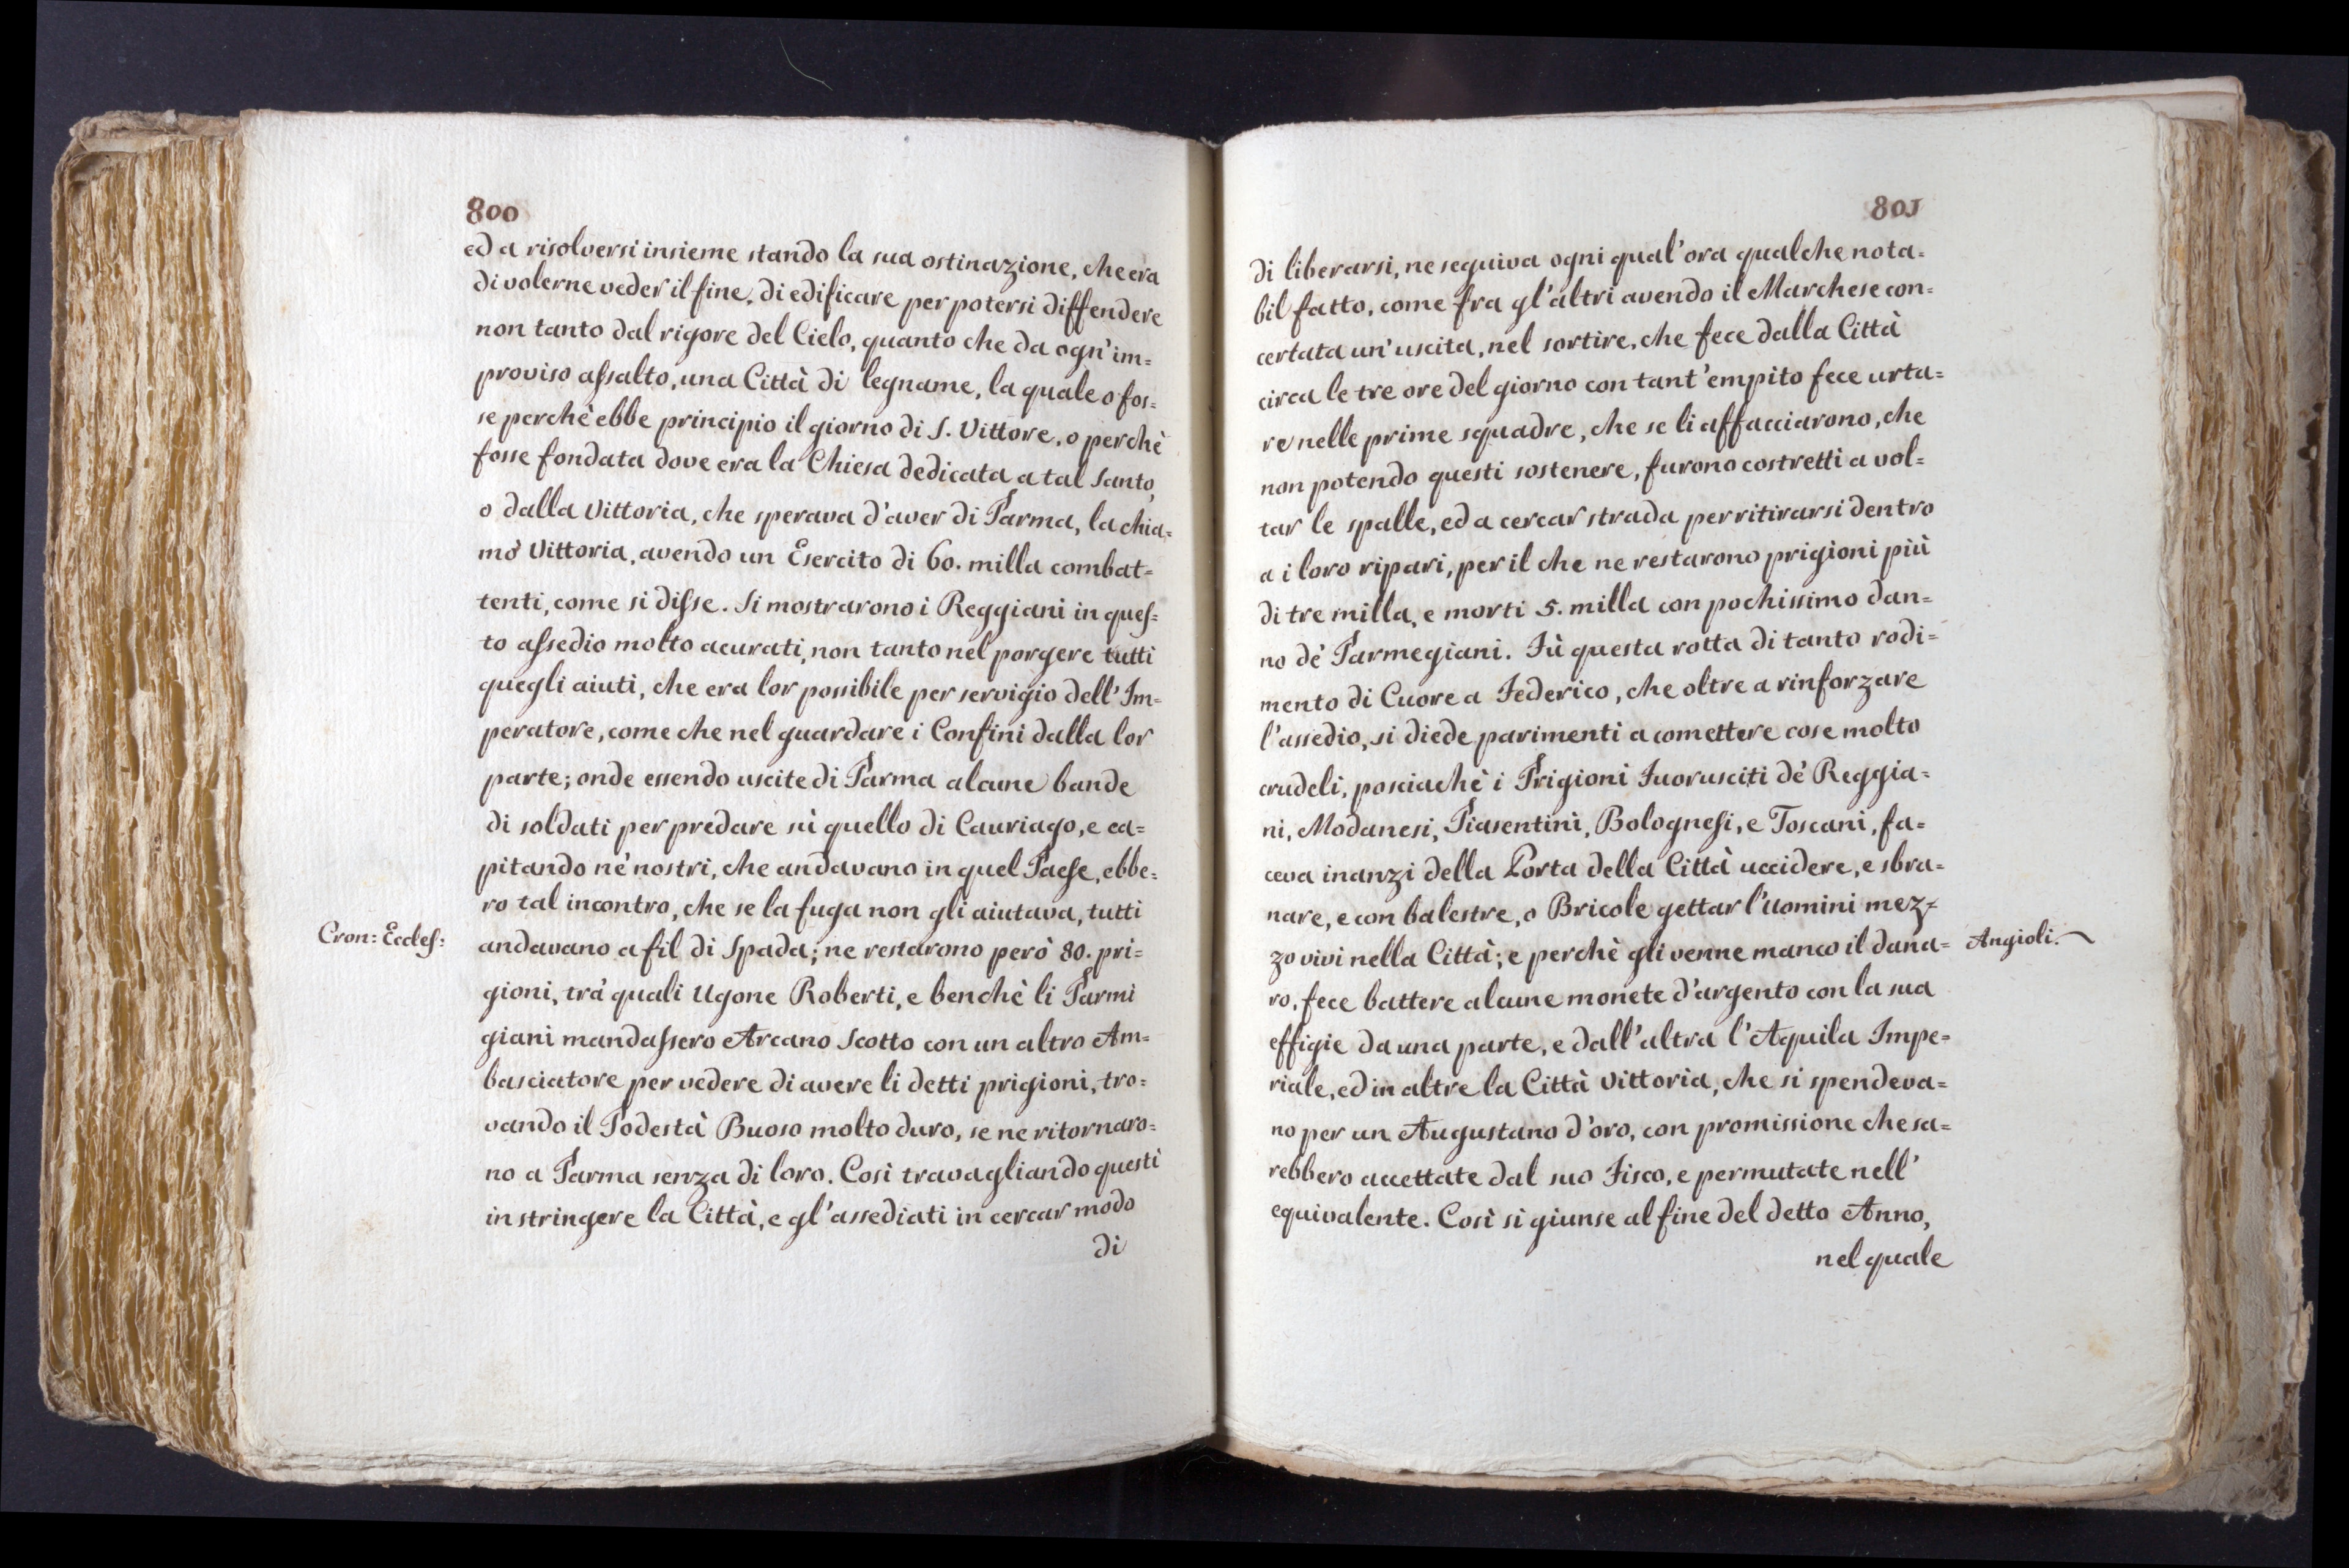 800
ed a risolversi insieme stando la sua ostinazione, che era
di volerne veder il fine, di edificare per potersi diffendere
non tanto dal rigore del Cielo, quanto che da ogn'im=
proviso aſsalto, una Città di legname, la quale o fos=
se perchè ebbe principio il giorno di S. Vittore, o perchè
fosse fondata dove era la Chiesa dedicata a tal Santo,
o dalla Vittoria, che sperava d'aver di Parma, la chia=
mò Vittoria, avendo un Esercito di 60. milla combat=
tenti, come si diſse. Si mostrarono i Reggiani in queſ=
to aſsedio molto acurati, non tanto nel porgere tutti
quegli aiuti, che era lor possibile per servigio dell'Im=
peratore, come che nel guardare i Confini dalla lor
parte; onde essendo uscite di Parma alcune bande
di soldati per predare sù quello di Cauriago, e ca=
pitando nè nostri, che andavano in quel Paeſe, ebbe=
ro tal incontro, che se la fuga non gli aiutava, tutti
Cron: Eccleſ:
andavano a fil di Spada; ne restarono però 80. pri=
gioni, trà quali Ugone Roberti, e benchè li Parmi
giani mandaſsero Arcano Scotto con un altro Am=
basciatore per vedere di avere li detti prigioni, tro=
vando il Podestà Buoso molto duro, se ne ritornaro=
no a Parma senza di loro. Così travagliando questi
in stringere la Città, e gl'assediati in cercar modo
di
801
di liberarsi, ne seguiva ogni qual'ora qualche nota=
bil fatto, come fra gl'altri avendo il Marchese con=
certata un'uscita, nel sortire, che fece dalla Città
circa le tre ore del giorno con tant'empito fece urta=
re nelle prime squadre, che se li affacciarono, che
non potendo questi sostenere, furono costretti a vol=
tar le spalle, ed a cercar strada per ritirarsi dentro
a i loro ripari, per il che ne restarono prigioni più
di tre milla, e morti 5. milla con pochissimo dan=
no dè Parmegiani. Fù questa rotta di tanto rodi=
mento di Cuore a Federico, che oltre a rinforzare
l'assedio, si diede parimenti a comettere cose molto
crudeli, posciachè i Prigioni Fuorusciti dè Reggia=
ni, Modanesi, Piasentini, Bologneſi, e Toscani, fa=
ceva inanzi della Porta della Città uccidere, e sbra=
nare, e con balestre, o Bricole gettar l'Uomini mez=
zo vivi nella Città; e perchè gli venne manco il dana=
Angioli.
ro, fece battere alcune monete d'argento con la sua
effigie da una parte, e dall'altra l'Aquila Impe=
riale, ed in altre la Città Vittoria, che si spendeva=
no per un Augustano d'oro, con promissione che sa=
rebbero accettate dal suo Fisco, e permutate nell'
equivalente. Così si giunse al fine del detto Anno,
nel quale